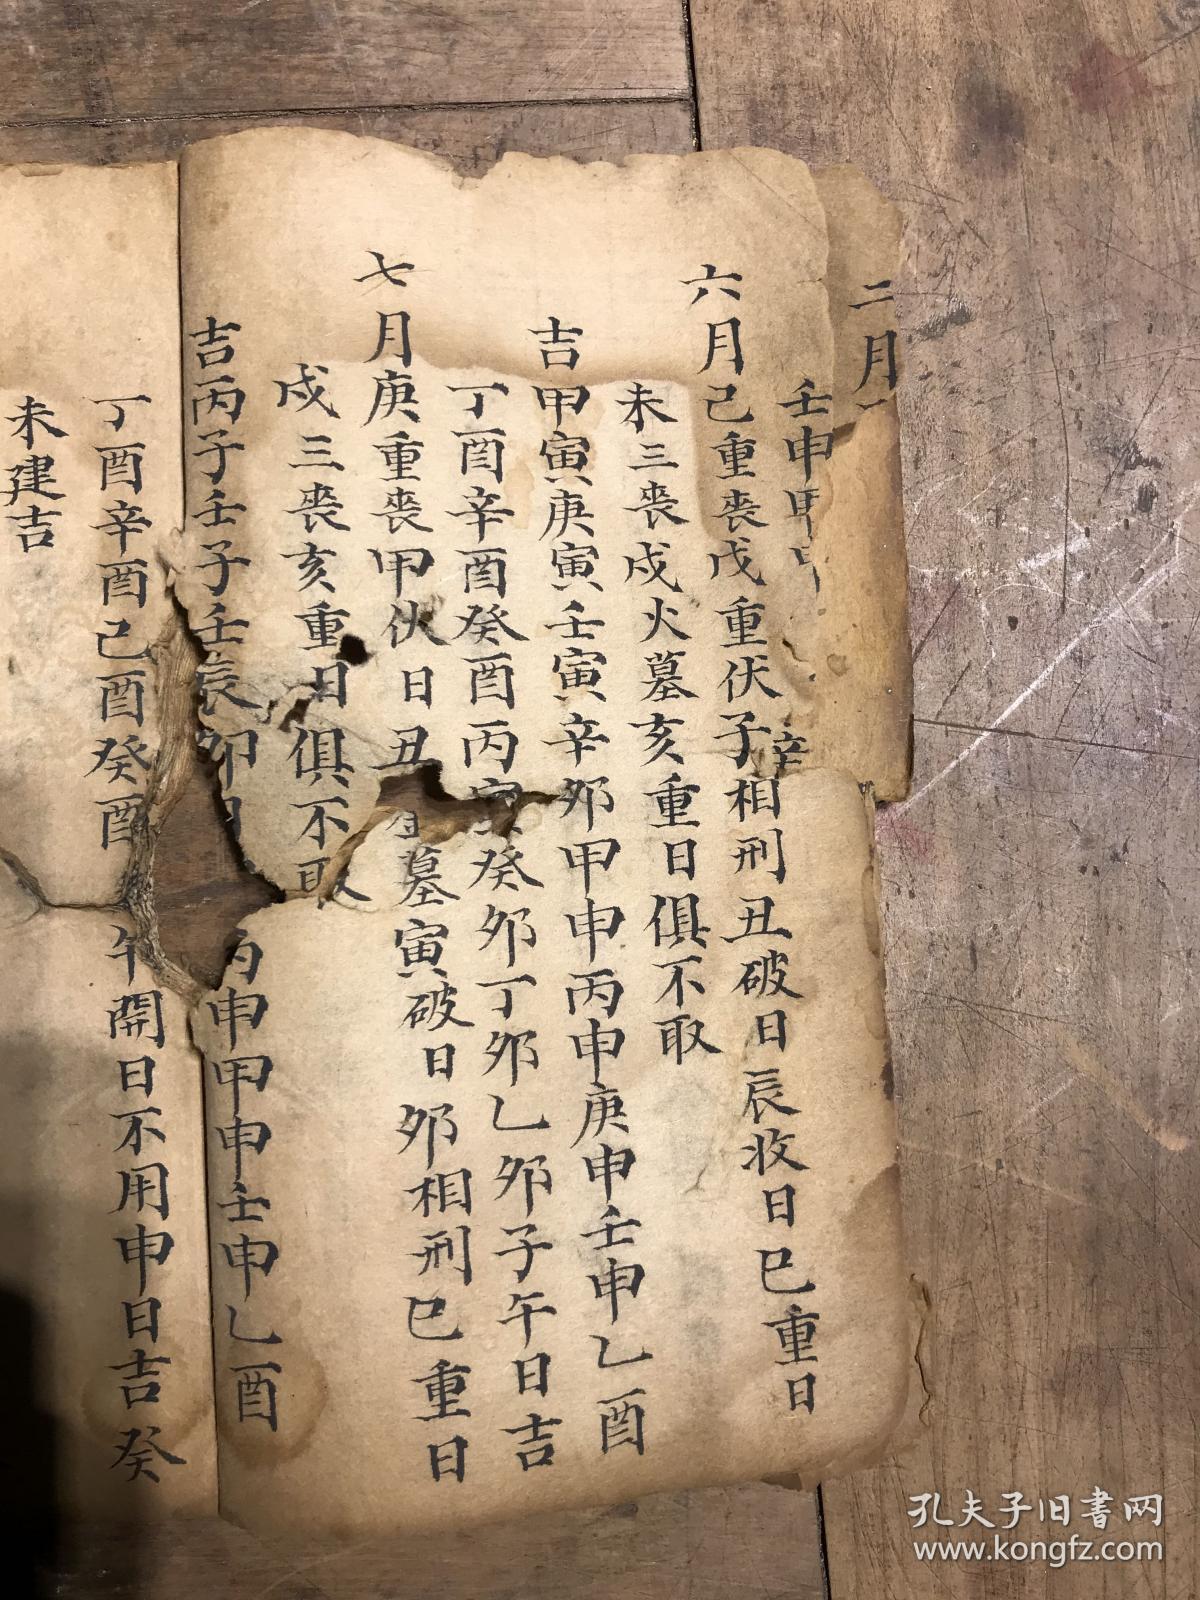 二月
壬申甲申
辛
六月己重喪戊重伏子相刑丑破日辰收日巳重日
未三喪戌火墓亥重日俱不取
吉甲寅庚寅壬寅辛夘甲申丙申庚申壬申乙酉
丁酉辛酉癸酉丙寅癸夘丁夘乙夘子午日吉
七月庚重喪甲伏日丑金墓寅破日夘相刑巳重日
戌三喪亥重日俱不取
吉丙子壬子壬辰夘
丙申甲申壬申乙酉
丁酉辛酉己酉癸酉
午開日不用申日吉癸
未建吉
孔夫子旧书网
www.kongfz.com